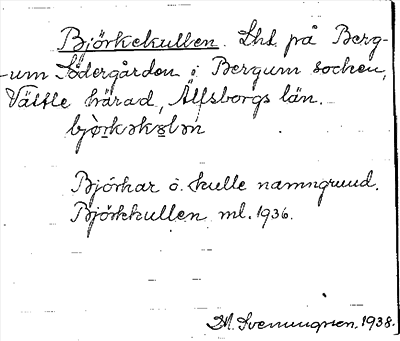 Björkekullen. Lhd. på Berg-
um Södergården i Bergum socken,
Vättle härad, Älfsborgs län.
bjò̤rkəkɵlən
Björkar o. kulle namngrund.
Björkkullen ml. 1936.
M. Svenungsson. 1938.